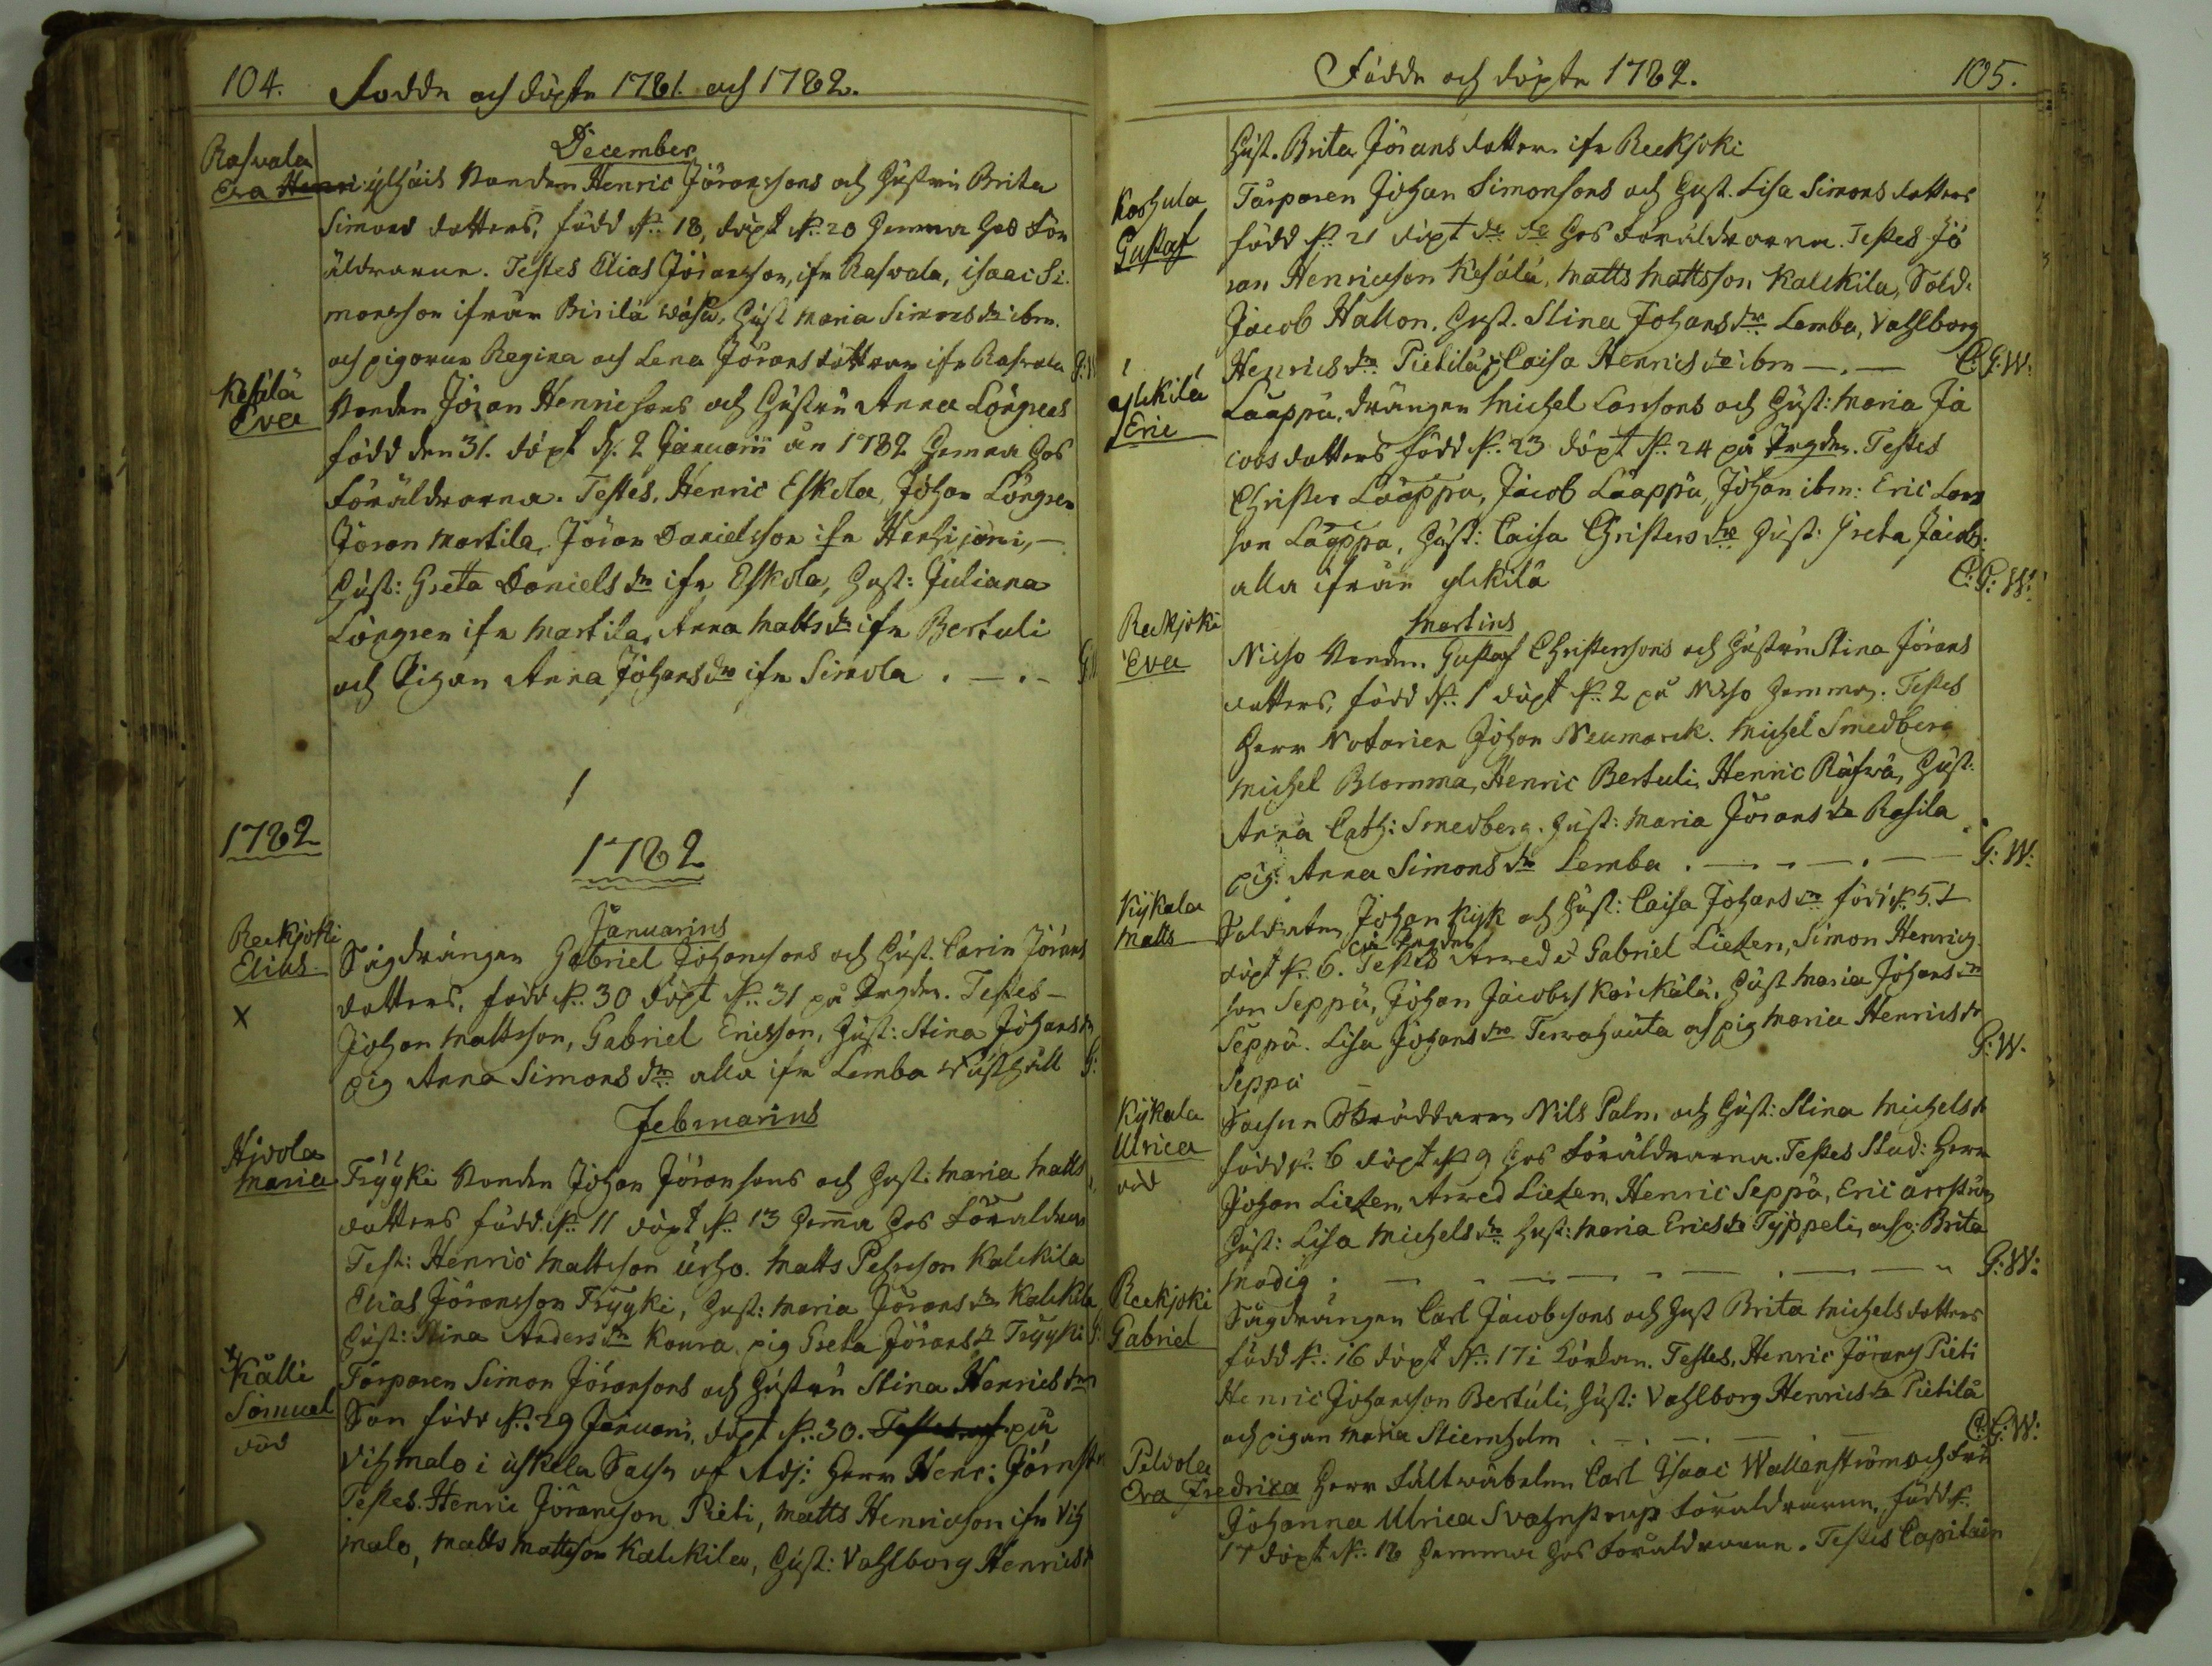 104. Fodde och döpte 1781. och 1782.
December
Rasvala
Eva Henri ylhäis Bonden Henric Jöranssons och Hustru Brita
Simons dotters, född d. 18, döpt d. 20 hemma hos För
äldrarne. Testes Elias Jöransson, ifn Rasvala, Isaac Si
monsson ifrån Birilä, Hust Maria Simons dr ibm.
och pigorne Regina och Lena Jörans döttrar ifn Rasvala G:W
Kesälä
Eva
Bonden Jöran Henricsons och Hustru Anna Löngrens
född den 31. döpt d. 2 Januarii än 1782 hemma hos
Föräldrarna. Testes, Henric Eskola, Johan Löngren
Jöran Martila, Jöran Danielsson ifn Herhijärvi,
Hust: Greta Daniels dr ifn Eskola, Hust: Juliana
Löngren ifn Martila, Anna Matts dr ifn Bertuli
och Pigan Anna Johans dr ifn Simola
1782
1782
Januarius
Reckjoki
Elias
X
Sågdrängen Gabriel Johanssons och Hust. Carin Jörans
dotters, född d. 30 döpt d. 31 på Prgdn. Testes
Johan Mattsson, Gabriel Ericsson, Hust: Stina Johans dr
pig Anna Simons dr alla ifn Lemba G:
Februarius
Hjvola
Maria
Tryyki Bonden Johan Jöransons och Hust: Maria Matts
dotters född d. 11 döpt d. 13 hemma hos Föraldrar
Test: Henric Mattsson Urho. Matts Pehrson Kalckila
Elias Jöransson Tryyki, Hust: Maria Jörans dr Kalckila
Hust: Stina Anders dr Koura, pig Greta Jörans dr Tryyki G:
Källi
Samuel
död
Torparen Simon Jöransons och Hustru Stina Henrics dr
Son född d. 29 Januarii, döpt d. 30. på
Vihmalo i Uskela Sochn af Adj: Herr Henr: Järnst
Testes. Henric Jöransson Pieti, Matts Henricson ifn Vih
malo, Matts Mattson Kalckila, Hust: Vahlborg Henrics dr
Födde och döpte 1782. 105.
Hust. Brita Jörans dotter ifn Reckjoki
Koskula
Gustaf
Torparen Johan Simonsons och Hust. Lisa Simons dotters
född d. 21 döpt do do hos Föräldrarna. Testes Jö
ran Henricson Kesälä, Matts Mattsson Kalckila, Sold.
Jacob Hallon. Hust. Stina Johans dr Lemba, Vahlborg
Henrics dr Pietilä, Caisa Henrics dr ibm C.G.W.
ylckilä
Eric
Laappa, drängen Michel Larssons och Hust: Maria Ja
cobs dotters född d. 23 döpt d. 24 på Prgdn. Testes
Christer Laappa, Jacob Laappa, Johan ibm: Eric Lars
son Laappa, Hust: Caisa Christers dr Hust: Greta Jacobs:
alla ifrån ylckilä C:G:W:
Martius
Reckjoki
Eva
Nicho Bonden Gustaf Christersons och Hustru Stina Jörans
dotters, född d. 1 döpt d. 2 på Nicho hemman. Testes
Herr Notarien Johan Neumarck. Michel Smedberg
Michel Blomma, Henric Bertuli, Henric Räfwä, Hust:
Anna Cath: Smedberg. Hust: Maria Jörans dr Rasila
pig: Anna Simons dr Lemba G:W:
Kykala
Matts
Soldaten Johan Kijk och Hust: Caisa Johans dr född d. 5
på Prgdn
döpt d. 6. Testes Arwed Gabriel Lieken, Simon Henrics
son Seppä, Johan Jacobss Karckälä, Hust Maria Johans dr
Seppä. Lisa Johans dr Terwahauta och pig Maria Henrics dr
Seppä G:W.
Kykala
Ulrica
död
Sochne Skräddaren Nils Palm och Hust: Stina Michels dr
född d. 6 döpt d. 9 hos Föräldrarna. Testes Stud: Herr
Johan Lieken, Arwed Lieken, Henric Seppä, Eric
Hust: Lisa Michels dr Hust: Maria Erics dr Typpeli, Brita
Modig G:W:
Reckjoki
Gabriel
Sågdrängen Carl Jacobsons och Hust Brita Michels dotters
född d. 16 döpt d. 17 i kyrkan. Testes, Henric Jörans Pieti
Henric Johansson Bertuli, Hust: Vahlborg Henrics dr Pietilä
och pigan Maria Stiernholm C:G:W:
Pelvola
Eva Fredrica Herr Fältwäbelen Carl Isaac Wallenström och Fru
Johanna Ulrica Svahnstrup Föräldrarne, född d.
17 döpt d. 18 hemma hos Föräldrarne. Testes Capitain